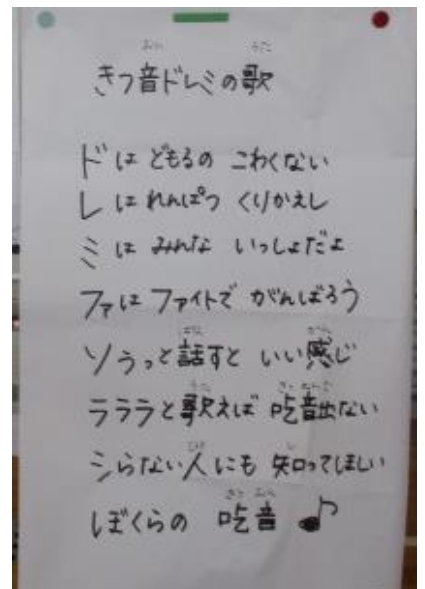 きつ音ドレミの歌
ドは どもるの こわくない
レは れんぱつ くりかえし
ミは みんな いっしょだよ
ファは ファイトで がんばろう
ソうっと話すと いい感じ
ラララと歌えば 吃音出ない
シらない人にも 知ってほしい
ぼくらの 吃音